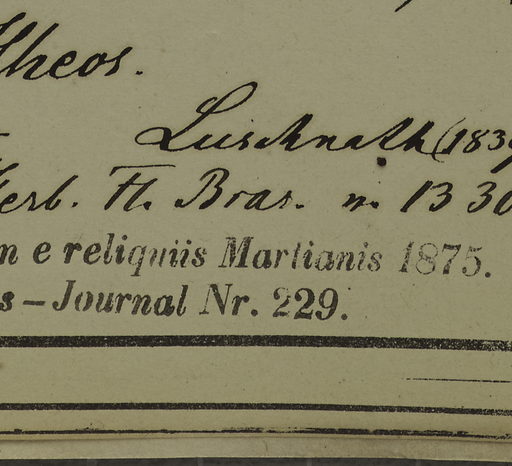 Ilheos.
Luschnath (1839
Herb. Fl. Bras. n. 1330
m e reliquiis Martianis 1875.
s – Journal Nr. 229.